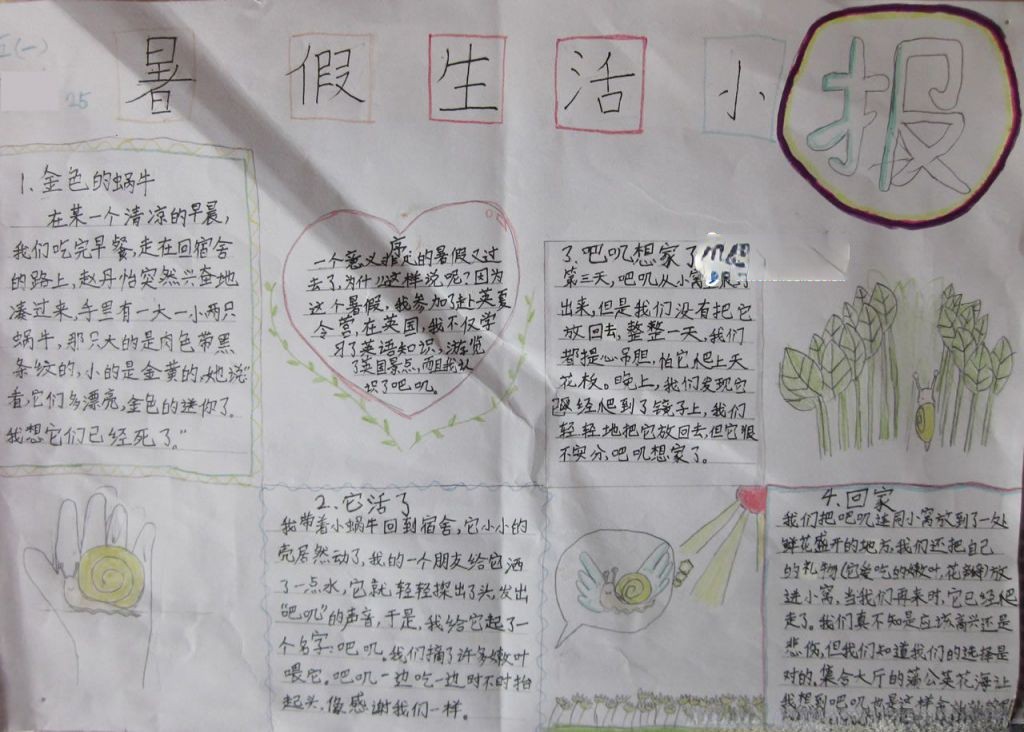 五(一)
25
暑假生活小报
1.金色的蜗牛
在某一个清凉的早晨,
我们吃完早餐,走在回宿舍
的路上,赵丹怡突然兴奋地
凑过来,手里有一大一小两只
蜗牛,那只大的是肉色带黑
条纹的,小的是金黄的,她说“
看,它们多漂亮,金色的送你了。
我想它们已经死了。”
序
一个意义非凡的暑假又过
去了,为什么这样说呢?因为
这个暑假,我参加了赴英夏
令营,在英国,我不仅学
习了英语知识,游览
了英国景点,而且我认
识了吧叽。
3.吧叽想家了
第三天,吧叽从小窝里
出来,但是我们没有把它
放回去,整整一天,我们
都提心吊胆,怕它爬上天
花板。晚上,我们发现它
已经爬到了镜子上,我们
轻轻地把它放回去,但它很
不安分,吧叽想家了。
2.它活了
我带着小蜗牛回到宿舍,它小小的
壳居然动了,我的一个朋友给它洒
了一点水,它就轻轻探出了头,发出
“吧叽”的声音,于是,我给它起了一
个名字:吧叽。我们摘了许多嫩叶
喂它。吧叽一边吃一边时不时抬
起头,像感谢我们一样。
4.回家
我们把吧叽连同小窝放到了一处
鲜花盛开的地方,我们还把自己
的礼物(它爱吃的嫩叶,花瓣)放
进小窝,当我们再来时,它已经爬
走了。我们真不知是应该高兴还是
悲伤,但我们知道我们的选择是
对的。集合大厅的蒲公英花海让
我想到吧叽也是这样